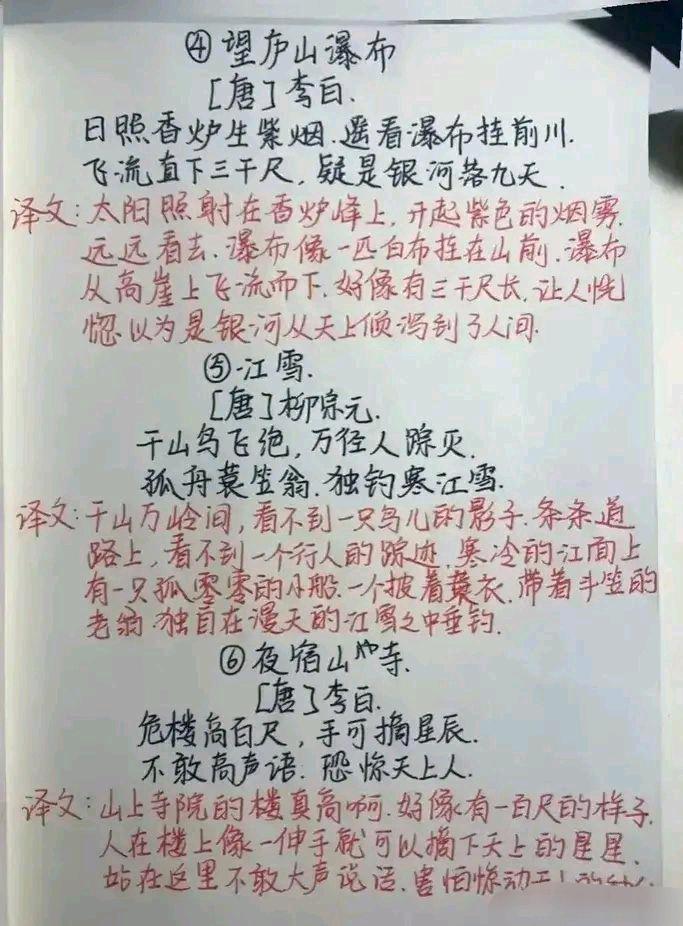 ④望庐山瀑布
[唐]李白.
日照香炉生紫烟.遥看瀑布挂前川.
飞流直下三千尺,疑是银河落九天.
译文:太阳照射在香炉峰上,升起紫色的烟雾.
远远看去.瀑布像一匹白布挂在山前.瀑布
从高崖上飞流而下.好像有三千尺长.让人恍
惚.以为是银河从天上倾泻到了人间.
⑤江雪.
[唐]柳宗元.
千山鸟飞绝,万径人踪灭.
孤舟蓑笠翁.独钓寒江雪.
译文:千山万岭间,看不到一只鸟儿的影子.条条道
路上,看不到一个行人的踪迹.寒冷的江面上
有一只孤零零的小船.一个披着蓑衣.带着斗笠的
老翁.独自在漫天的江雪之中垂钓.
⑥夜宿山中寺.
[唐]李白.
危楼高百尺,手可摘星辰.
不敢高声语.恐惊天上人.
译文:山上寺院的楼真高啊.好像有一百尺的样子.
人在楼上像一伸手就可以摘下天上的星星.
站在这里不敢大声说话.害怕惊动